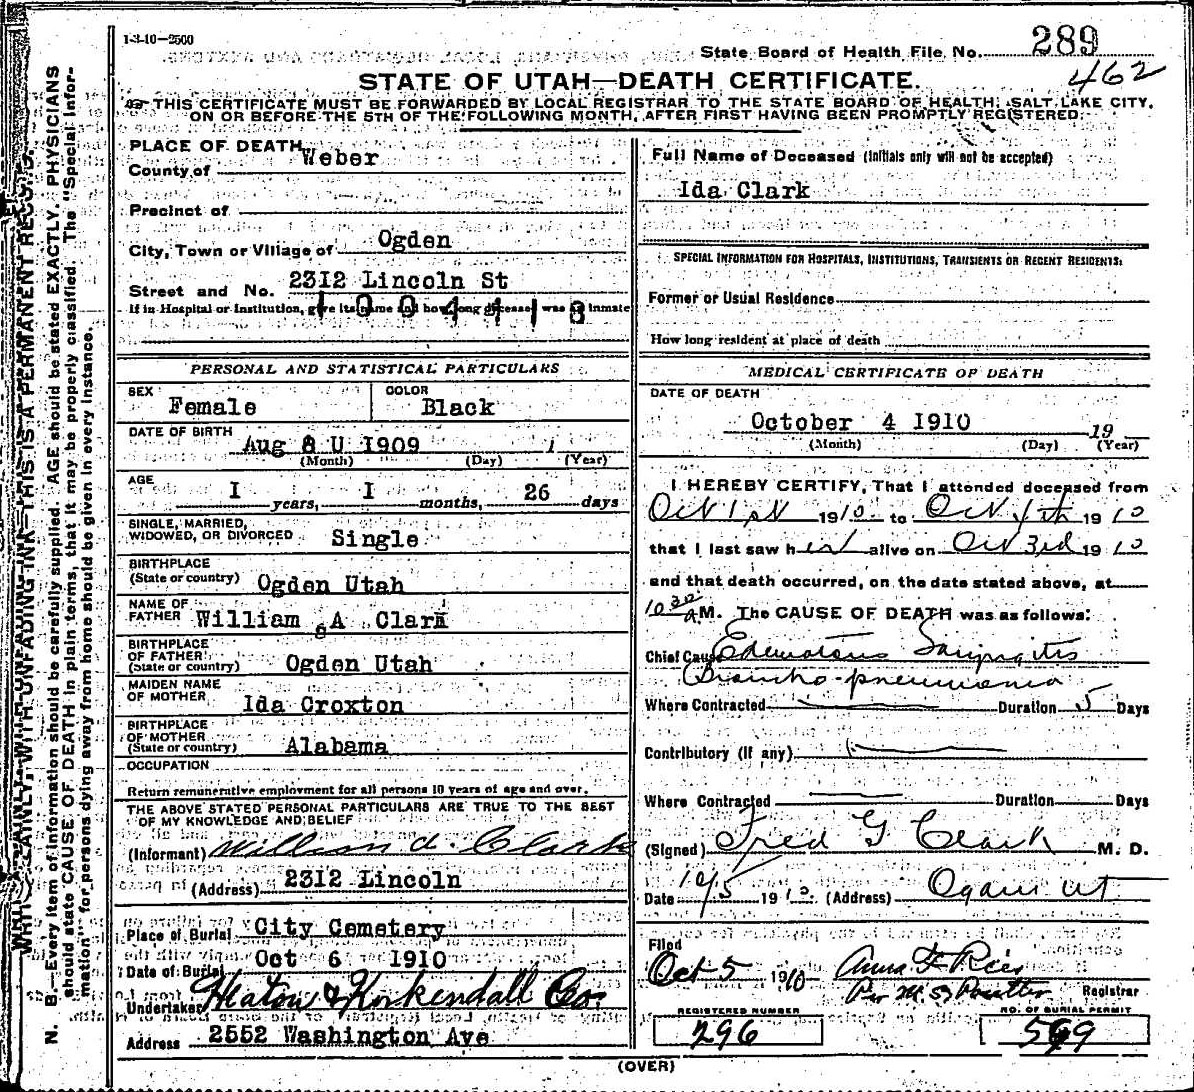 1-3-10—2500
State Board of Health File No. 289
462
STATE OF UTAH—DEATH CERTIFICATE.
THIS CERTIFICATE MUST BE FORWARDED BY LOCAL REGISTRAR TO THE STATE BOARD OF HEALTH, SALT LAKE CITY,
ON OR BEFORE THE 5TH OF THE FOLLOWING MONTH, AFTER FIRST HAVING BEEN PROMPTLY REGISTERED.
WRITE PLAINLY, WITH UNFADING INK—THIS IS A PERMANENT RECORD.
N. B.—Every item of information should be carefully supplied. AGE should be stated EXACTLY. PHYSICIANS
should state CAUSE OF DEATH in plain terms, that it may be properly classified. The "Special Infor-
mation" for persons dying away from home should be given in every instance.
PLACE OF DEATH
County of Weber
Precinct of
City, Town or Village of Ogden
Street and No. 2312 Lincoln St
If in Hospital or Institution, give its name and how long deceased was an inmate
1004418
PERSONAL AND STATISTICAL PARTICULARS
SEX Female COLOR Black
DATE OF BIRTH Aug 8 U 1909
(Month) (Day) (Year)
AGE I years, I months, 26 days
SINGLE, MARRIED,
WIDOWED, OR DIVORCED Single
BIRTHPLACE
(State or country) Ogden Utah
NAME OF
FATHER William A Clark
BIRTHPLACE
OF FATHER
(State or country) Ogden Utah
MAIDEN NAME
OF MOTHER Ida Croxton
BIRTHPLACE
OF MOTHER
(State or country) Alabama
OCCUPATION
Return remunerative employment for all persons 10 years of age and over.
THE ABOVE STATED PERSONAL PARTICULARS ARE TRUE TO THE BEST
OF MY KNOWLEDGE AND BELIEF
(Informant) William A. Clark
(Address) 2312 Lincoln
Place of Burial City Cemetery
Date of Burial Oct 6 1910
Undertaker Heaton & Kirkendall Co.
Address 2552 Washington Ave
Full Name of Deceased (Initials only will not be accepted)
Ida Clark
SPECIAL INFORMATION FOR HOSPITALS, INSTITUTIONS, TRANSIENTS OR RECENT RESIDENTS:
Former or Usual Residence
How long resident at place of death
MEDICAL CERTIFICATE OF DEATH
DATE OF DEATH
October 4 1910 19
(Month) (Day) (Year)
I HEREBY CERTIFY, That I attended deceased from
Oct 1st 1910 to Oct 4th 1910
that I last saw her alive on Oct 3rd 1910
and that death occurred, on the date stated above, at
10 30 A.M. The CAUSE OF DEATH was as follows:
Chief Cause Edematous Laryngitis
Broncho-pneumonia
Where Contracted Duration 5 Days
Contributory (if any)
Where Contracted Duration Days
(Signed) Fred G Clark M. D.
Date 10/5 1910. (Address) Ogden Ut
Filed
Oct 5 1910 Anna F Ries
Per Registrar
REGISTERED NUMBER
296
NO. OF BURIAL PERMIT
599
(OVER)